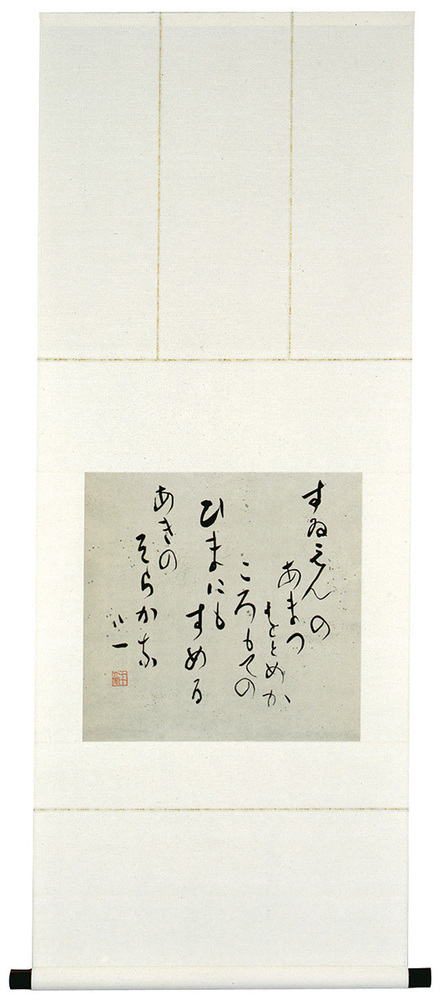 すゐえんの
あまつ
をとめか
ころもての
ひまにも
すめる
あきの
そらかな
八一